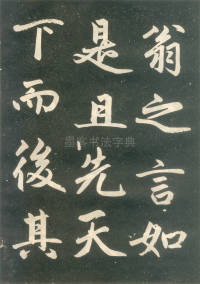 翁之言如
是且先天
下而後其
墨客书法字典